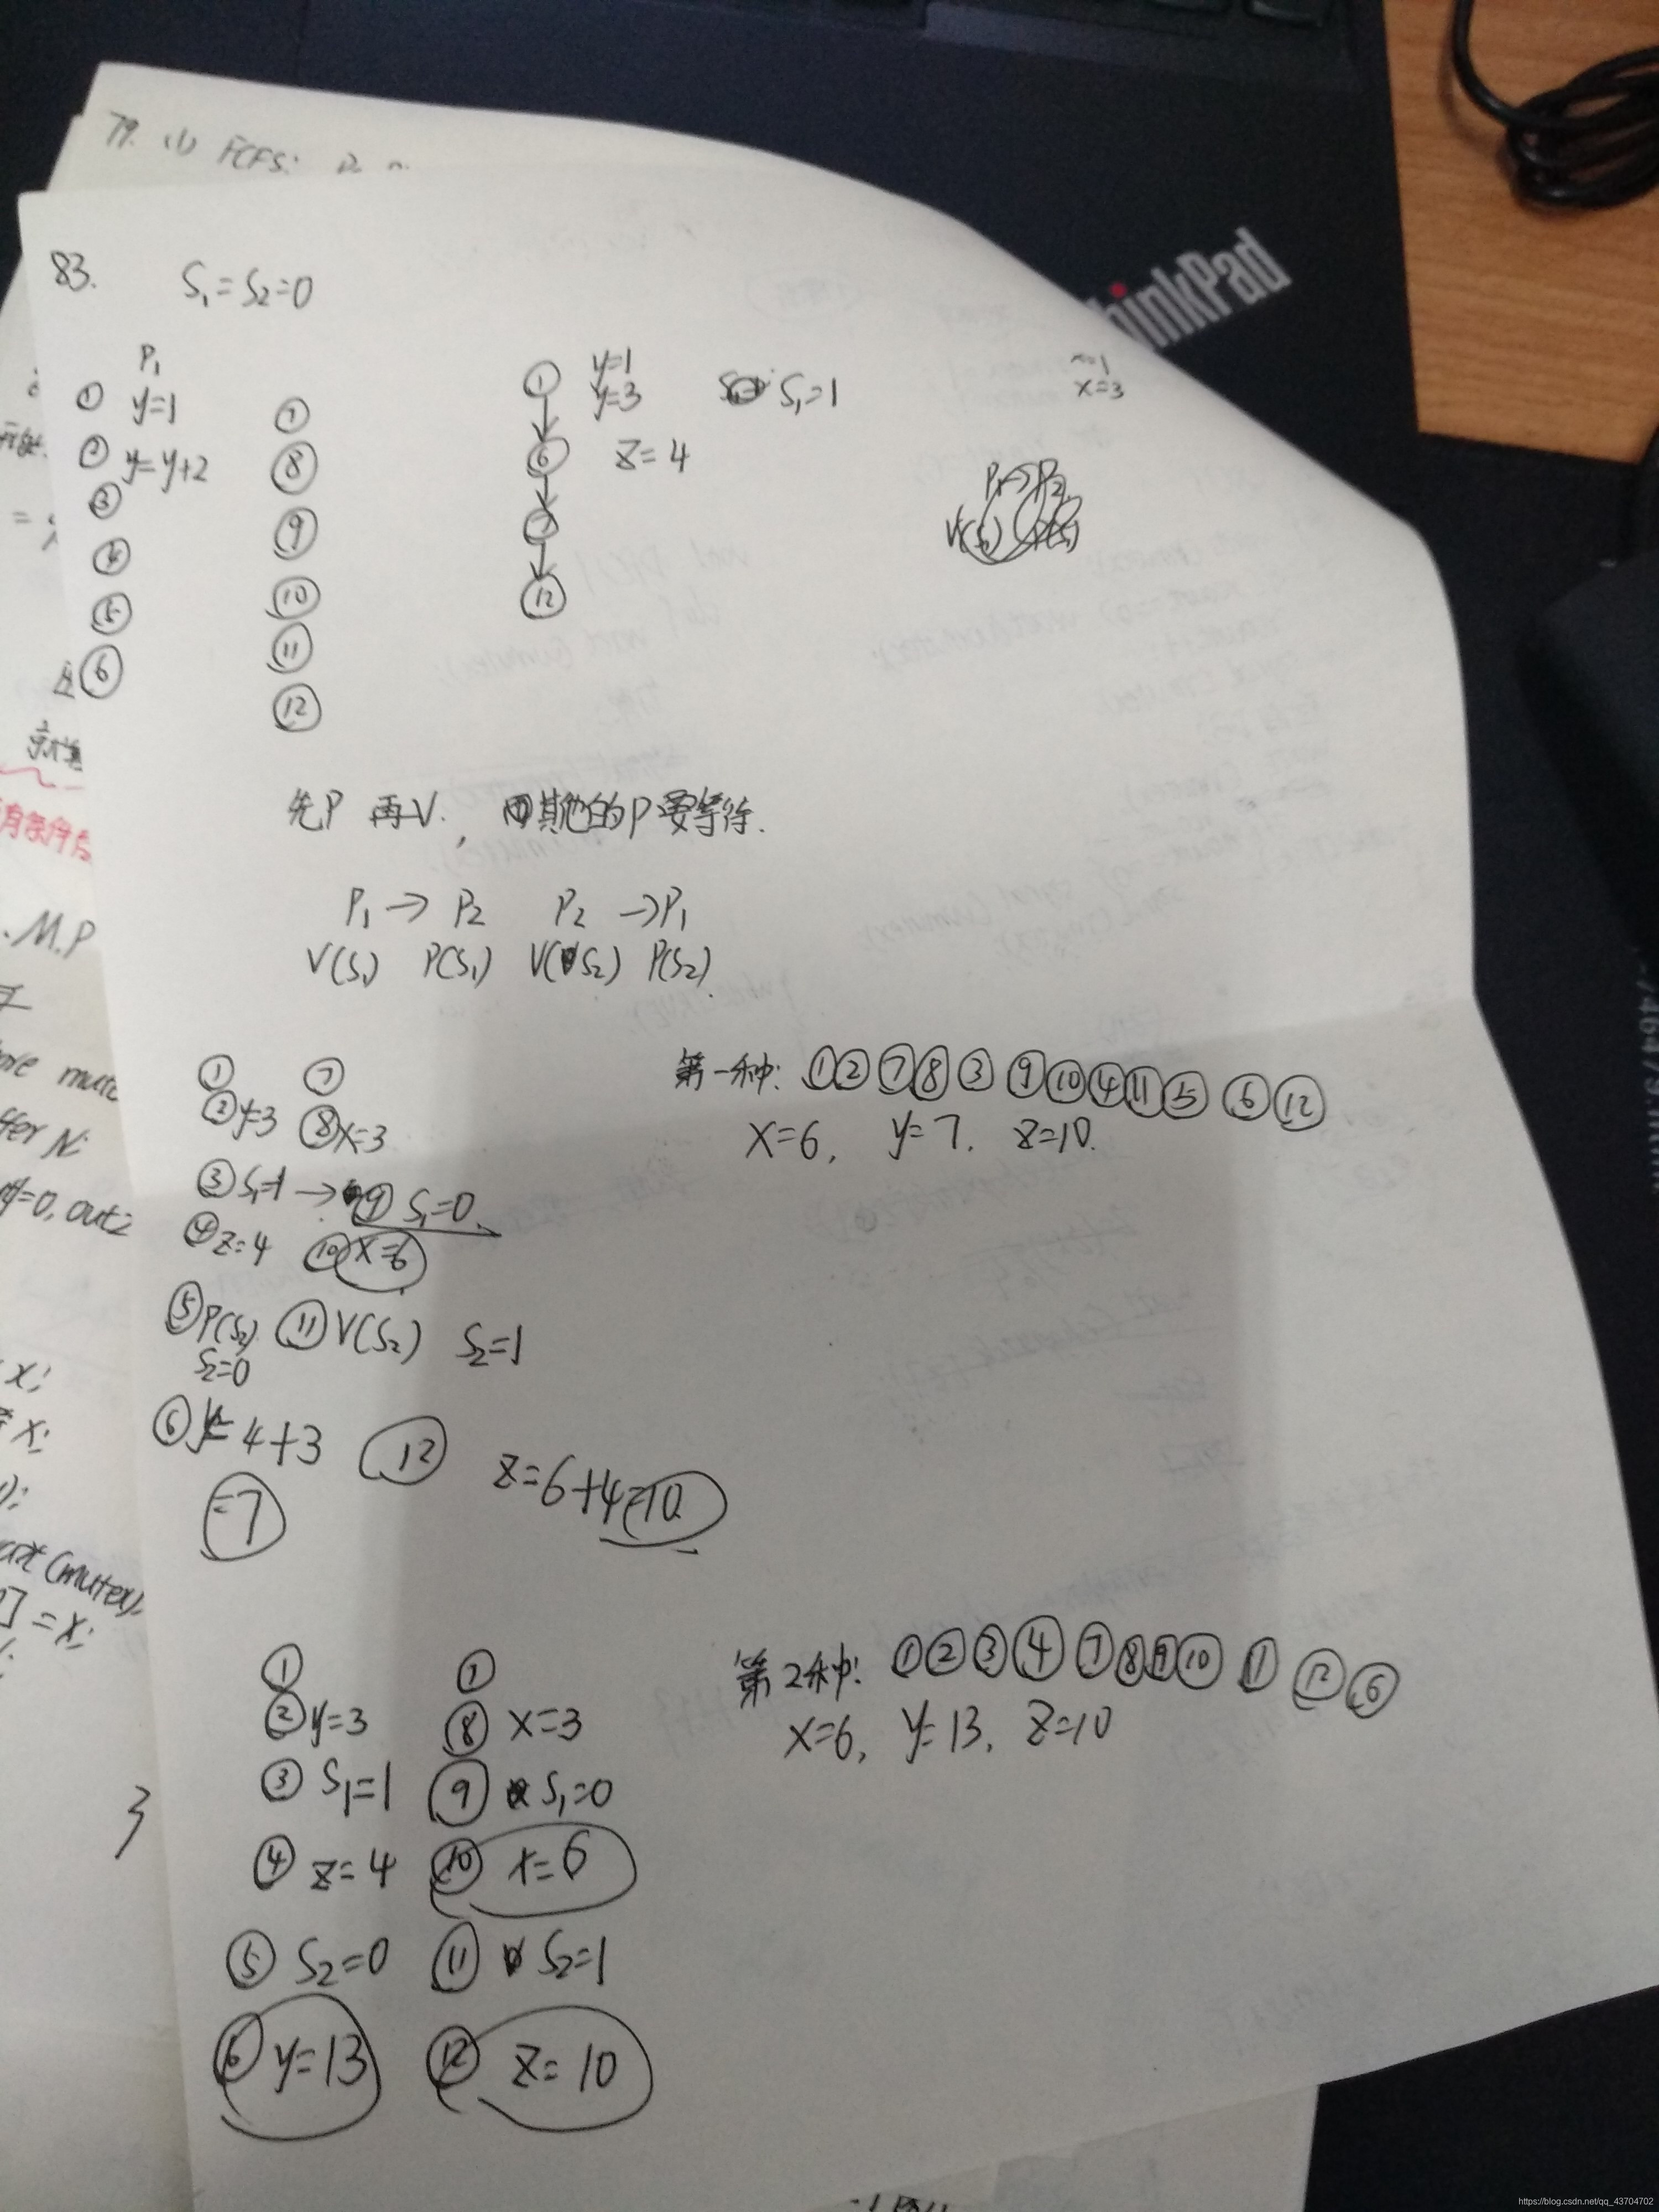 79. (1) FCFS:
83. S₁=S₂=0
P₁
① y=1 ⑦
② y=y+2 ⑧
③ ⑨
④ ⑩
⑤ ⑪
⑥ ⑫
① y=1
y=3 S₁=1
⑥ z=4
⑦
⑫
x=3
P₁→P₂
V(S₁) P(S₁)
先P 再V, 因其他的P要等待.
P₁ → P₂ P₂ → P₁
V(S₁) P(S₁) V(S₂) P(S₂)
① ⑦
② y=3 ⑧ x=3
③ S₁=1 → ⑨ S₁=0
④ z=4 ⑩ x=6
⑤ P(S₂) ⑪ V(S₂) S₂=1
S₂=0
⑥ y=4+3 ⑫ z=6+4=10
=7
第一种: ①②⑦⑧③⑨⑩④⑪⑤⑥⑫
x=6, y=7, z=10.
① ⑦
② y=3 ⑧ x=3
③ S₁=1 ⑨ S₁=0
④ z=4 ⑩ x=6
⑤ S₂=0 ⑪ S₂=1
⑥ y=13 ⑫ z=10
第2种: ①②③④⑦⑧⑨⑩⑪⑫⑥
x=6, y=13, z=10
3
.M.P
=0, out=
x;
x;
(mutex)
] = x;
ThinkPad
https://blog.csdn.net/qq_43704702